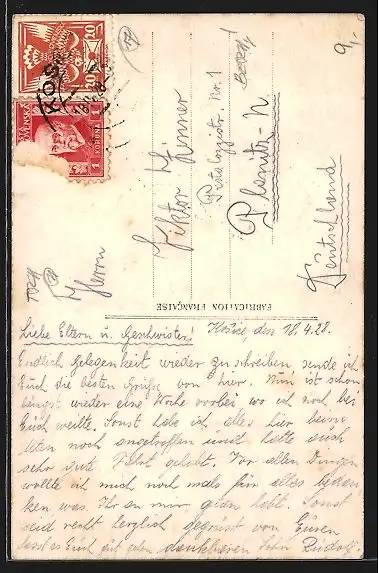 Herrn
Viktor Zinner
Pestalozzistr. No. 1
Planitz-N
Deutschland
FABRICATION FRANÇAISE
9,-
20
20
1
KOŠ
Liebe Eltern u. Geschwister!
Košice, den 18.4.28.
Endlich Gelegenheit wieder zu schreiben, sende ich
Euch die besten Grüße von hier. Nun ist schon
längst wieder eine Woche vorbei wo ich noch bei
Euch weilte. Sonst habe ich alles hier beim
alten noch angetroffen und hatte auch
sehr gute Fahrt gehabt. Vor allen Dingen
wollte ich mich noch mals für alles bedan-
ken was Ihr an mir getan habt. Sonst
seid recht herzlich gegrüsst von Euren
dankbaren Sohn Rudolf.